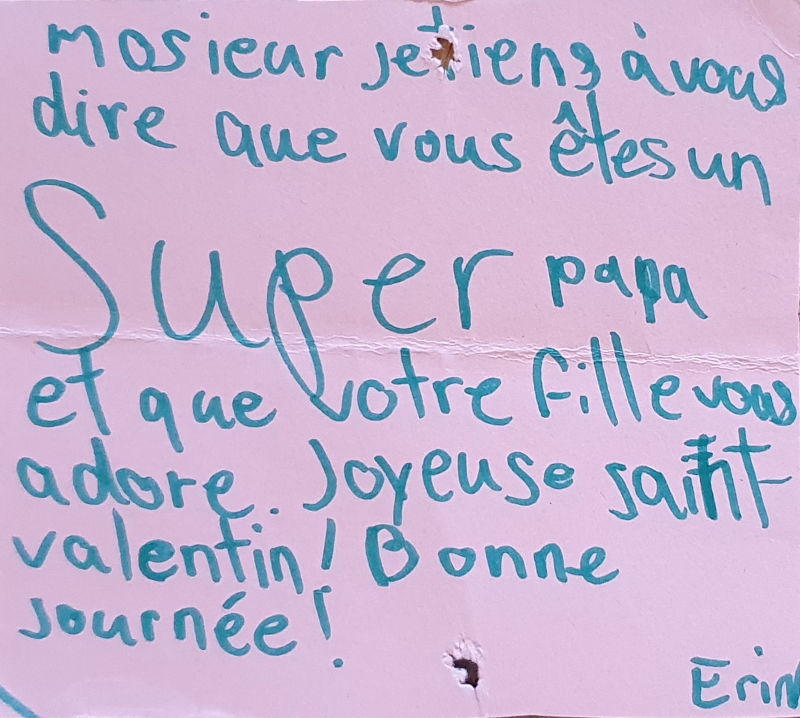 mosieur je tiens à vous
dire que vous êtes un
Super papa
et que votre fille vous
adore. Joyeuse saint
valentin! Bonne
journée!
Erin